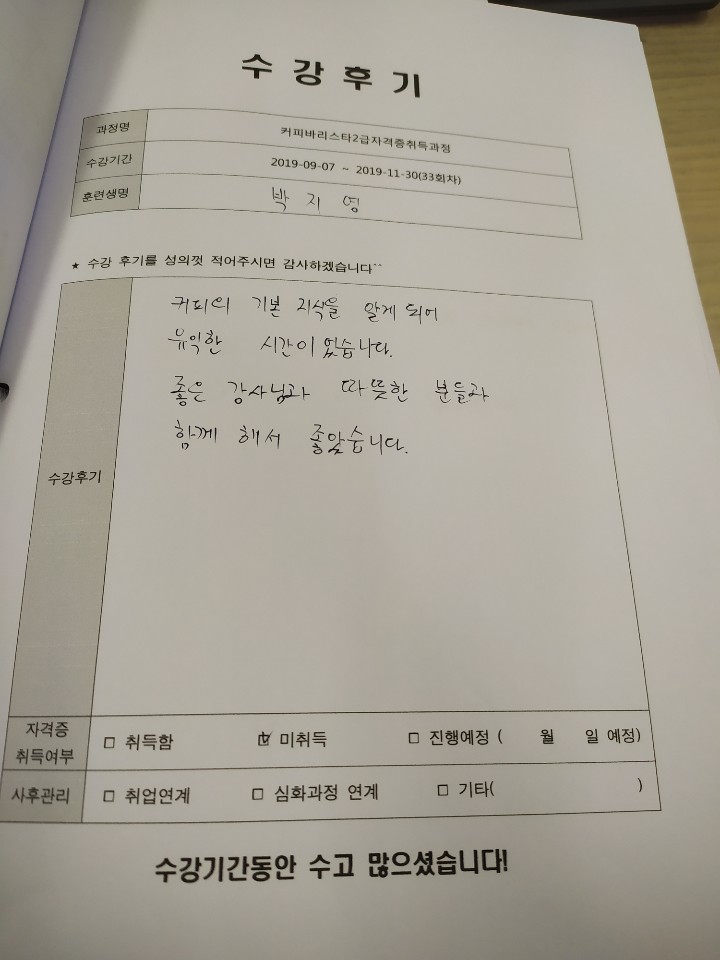 수 강 후 기
과정명 커피바리스타2급자격증취득과정
수강기간 2019-09-07 ~ 2019-11-30(33회차)
훈련생명 박 지 영
★ 수강 후기를 성의껏 적어주시면 감사하겠습니다^^
커피의 기본 지식을 알게 되어
유익한 시간이 었습니다.
좋은 강사님과 따뜻한 분들과
함께 해서 좋았습니다.
수강후기
자격증
취득여부 □ 취득함 ☑ 미취득 □ 진행예정 ( 월 일 예정)
사후관리 □ 취업연계 □ 심화과정 연계 □ 기타( )
수강기간동안 수고 많으셨습니다!